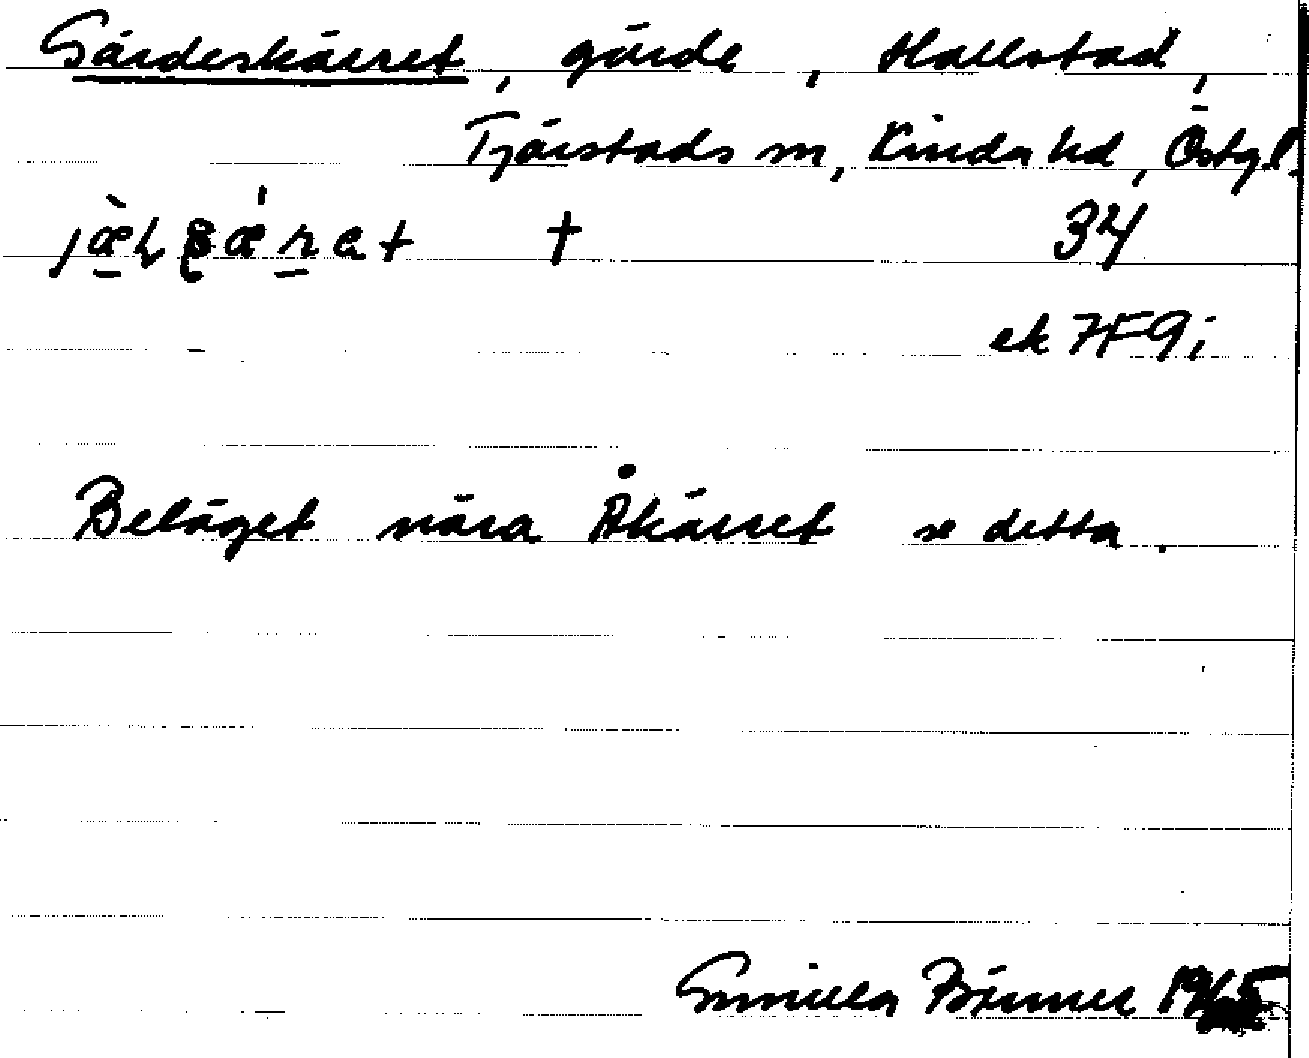 Gärdeskärret, gärde, Hallstad,
Tjärstads sn, Kinda hd, Östgl.
† 34
ek 7F9i
Beläget nära Åkärret se detta.
Gunilla 1965